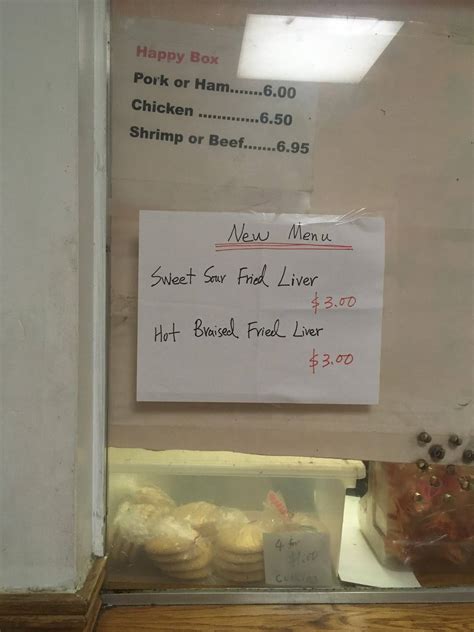 Happy Box
Pork or Ham.......6.00
Chicken .............6.50
Shrimp or Beef.......6.95
New Menu
Sweet Sour Fried Liver
$3.00
Hot Braised Fried Liver
$3.00
4 for
$1.00
Cookies